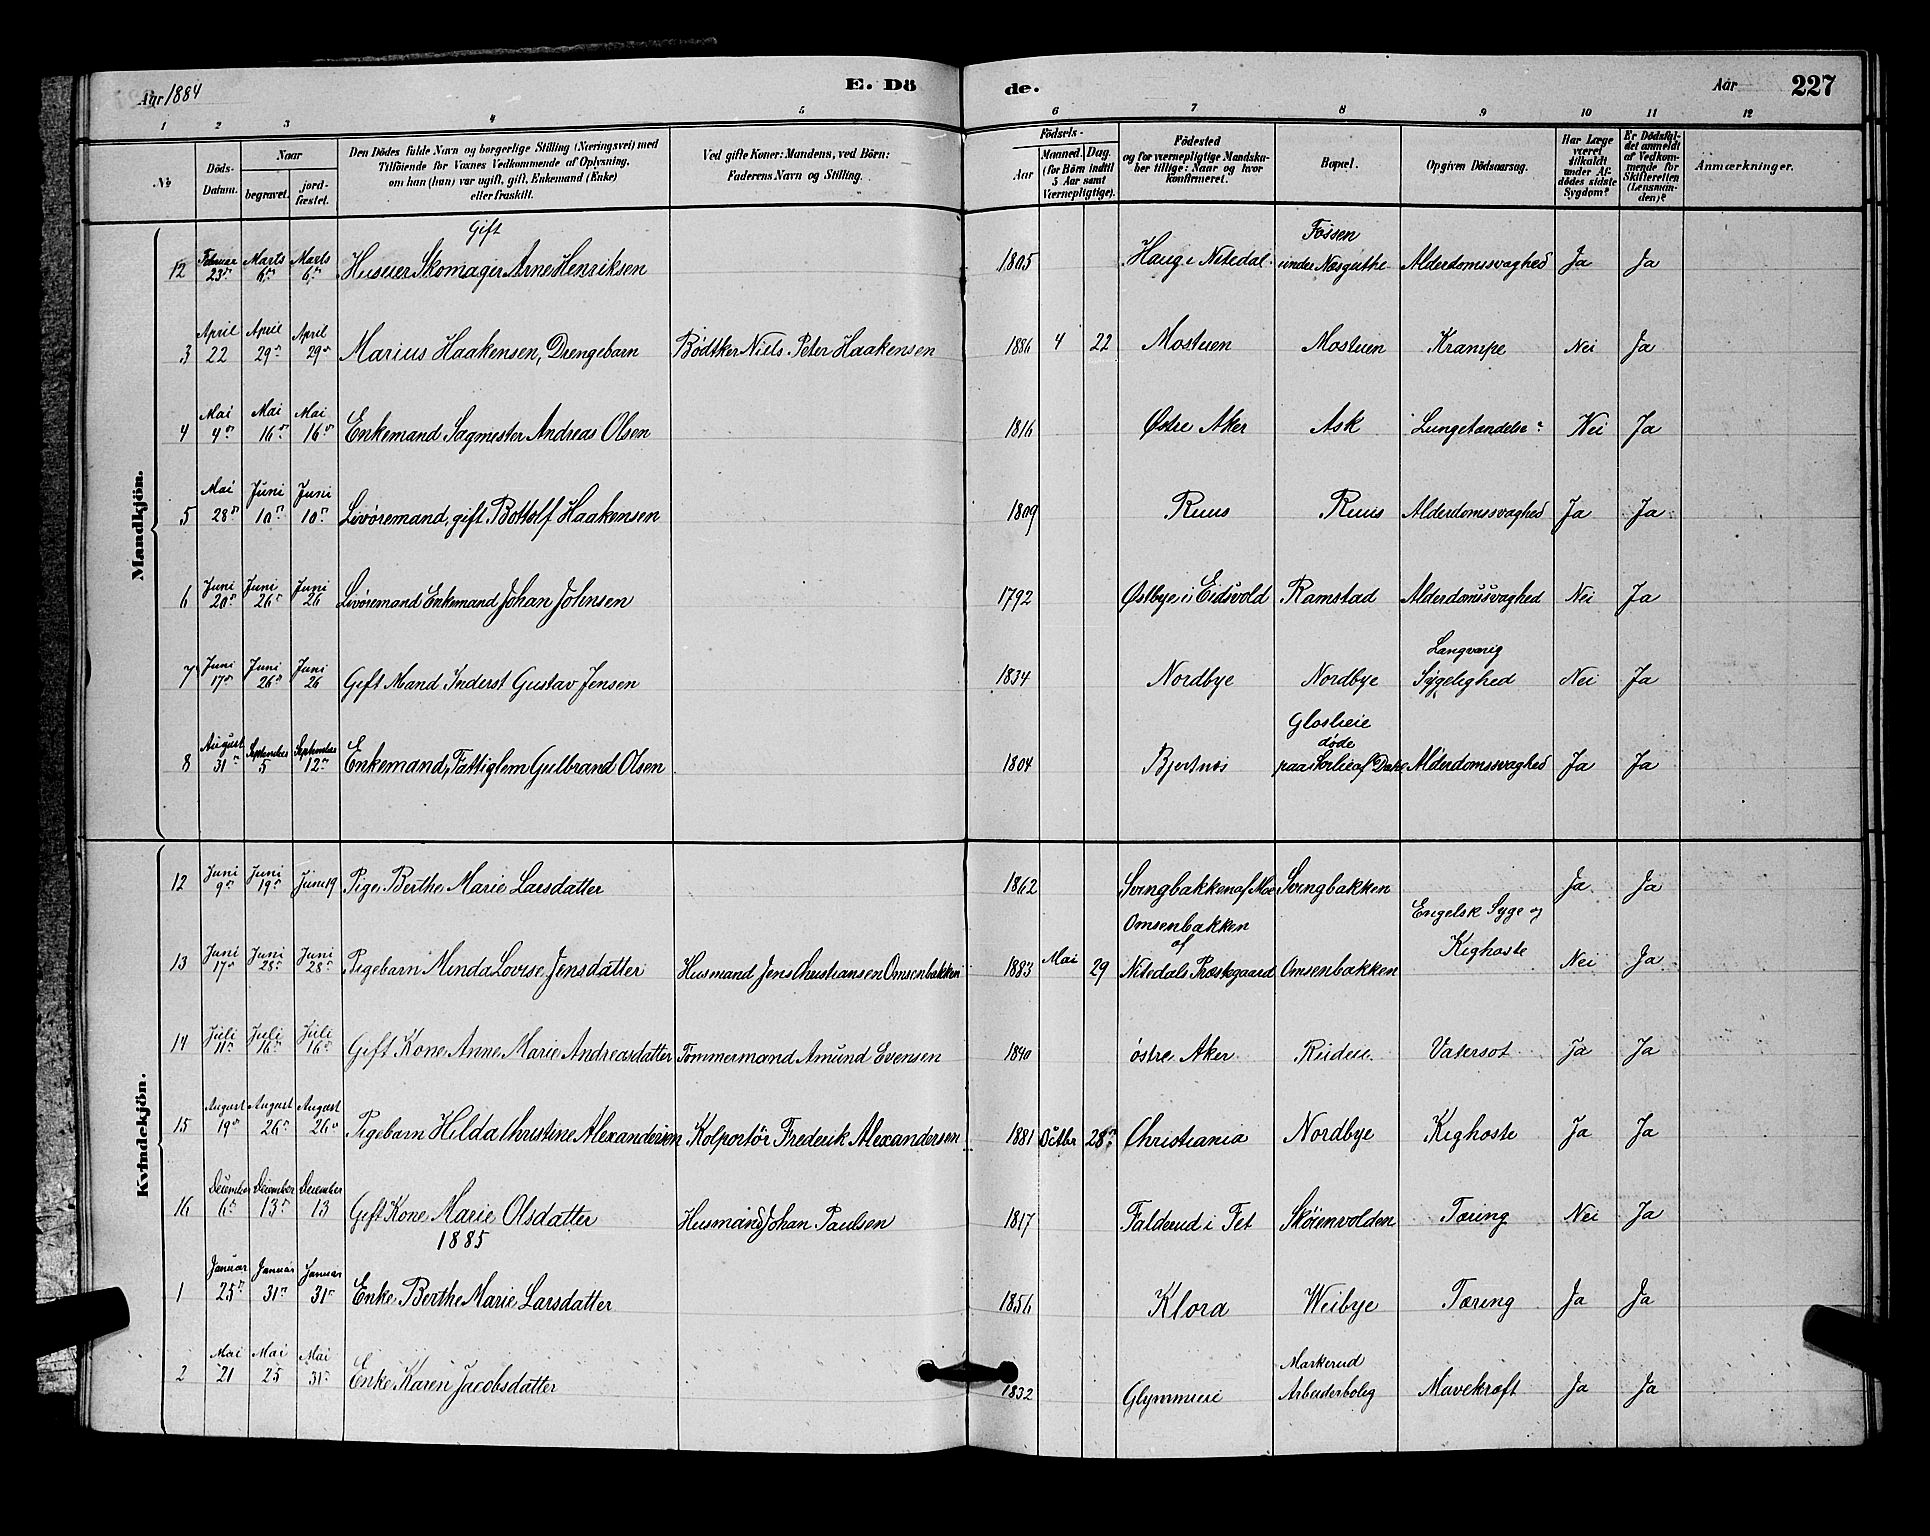 Aar 1884 E. Dö de. Aar 227
1 2 3 4 5 6 7 8 9 10 11 12
No Döds-Datum. Naar begravet. jordfæstet. Den Dödes fulde Navn og borgerlige Stilling (Næringsvei) med Tilföiende for Voxnes Vedkommende af Oplysning, om han (hun) var ugift, gift, Enkemand (Enke) eller fraskilt. Ved gifte Koner: Mandens, ved Börn: Faderens Navn og Stilling. Födsels- Aar Maaned. Dag. (for Børn indtil 5 Aar samt Værnepligtige). Födested og for værnepligtige Mandskaber tillige: Naar og hvor konfirmeret. Bopæl. Opgiven Dödsaarsag. Har Læge været tilkaldt under Afdödes sidste Sygdom? Er Dödsfaldet anmeldt af Vedkommende for Skifteretten (Lensmanden)? Anmærkninger.
Mandkjön.
Gift Fossen
12 Februar 23d Marts 6d Marts 6d Huseier Skomager Arne Henriksen 1805 Haug i Nitedal under Næsguthe Alderdomssvaghed Ja Ja
3 April 22 April 29d April 29d Marius Haakensen, Drengebarn Bødtker Niels Peter Haakensen 1886 4 22 Mostuen Mostuen Krampe Nei Ja
4 Mai 4d Mai 16d Mai 16d Enkemand Sagmester Andreas Olsen 1816 Østre Aker Ask Lungetændelse Nei Ja
5 Mai 28d Juni 10d Juni 10d Livøremand, gift Bottolf Haakensen 1809 Ruus Ruus Alderdomssvaghed Ja Ja
6 Juni 20d Juni 26d Juni 26 Livøremand Enkemand Johan Johnsen 1792 Østbye i Eidsvold Ramstad Alderdomssvaghed Nei Ja
7 Juni 17d Juni 26d Juni 26 Gift Mand Inderst Gustav Jensen 1834 Nordbye Nordbye Langvarig Sygelighed Nei Ja
8 August 31d September 5 September 12d Enkemand, Fattiglem Gulbrand Olsen 1804 Bjertnæs Glosheie døde paa Sorlie af Dahl Alderdomssvaghed Ja Ja
Kvindekjön.
12 Juni 9d Juni 19d Juni 19 Pige Berthe Marie Larsdatter 1862 Svingbakken af Moe Svingbakken Ja Ja
13 Juni 17d Juni 28d Juni 28d Pigebarn Minda Lovise Jensdatter Husmand Jens Christiansen Omsenbakken 1883 Mai 29 Omsenbakken af Nitedals Præstegaard Omsenbakken Engelsk Syge og Kighoste Nei Ja
14 Juli 11d Juli 16d Juli 16d Gift Kone Anne Marie Andreasdatter Tømmermand Amund Evensen 1840 østre Aker Vatersot Ja Ja
15 August 19d August 26d August 26d Pigebarn Hilda Christine Alexandersen Kolportör Frederik Alexandersen 1881 Octbr 28d Christiania Nordbye Kighoste Ja Ja
16 December 6d December 13d December 13 Gift Kone Marie Olsdatter Husmand Johan Paulsen 1817 Falderud i Fet Skøienvolden Tæring Nei Ja
1885
1 Januar 25d Januar 31d Januar 31d Enke Berthe Marie Larsdatter 1856 Klora Weibye Tæring Ja Ja
2 Mai 21 Mai 25 Mai 31d Enke Karen Jacobsdatter 1832 Glymmeie Markerud Arbeiderbolig Mavekræft Ja Ja